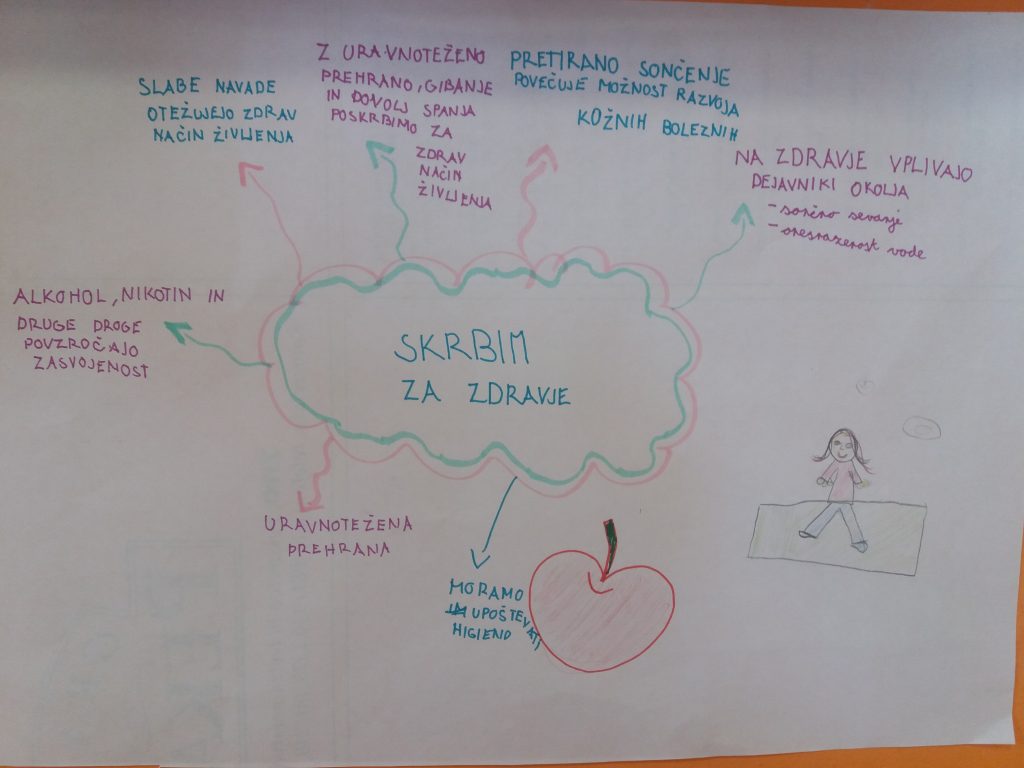 SLABE NAVADE
OTEŽUJEJO ZDRAV
NAČIN ŽIVLJENJA
Z URAVNOTEŽENO
PREHRANO, GIBANJE
IN DOVOLJ SPANJA
POSKRBIMO ZA
ZDRAV
NAČIN
ŽIVLJENJA
PRETIRANO SONČENJE
POVEČUJE MOŽNOST RAZVOJA
KOŽNIH BOLEZNIH
NA ZDRAVJE VPLIVAJO
DEJAVNIKI OKOLJA
- sončno sevanje
- onesnaženost vode
ALKOHOL, NIKOTIN IN
DRUGE DROGE
POVZROČAJO
ZASVOJENOST
SKRBIM
ZA ZDRAVJE
URAVNOTEŽENA
PREHRANA
MORAMO
UPOŠTEVATI
HIGIENO